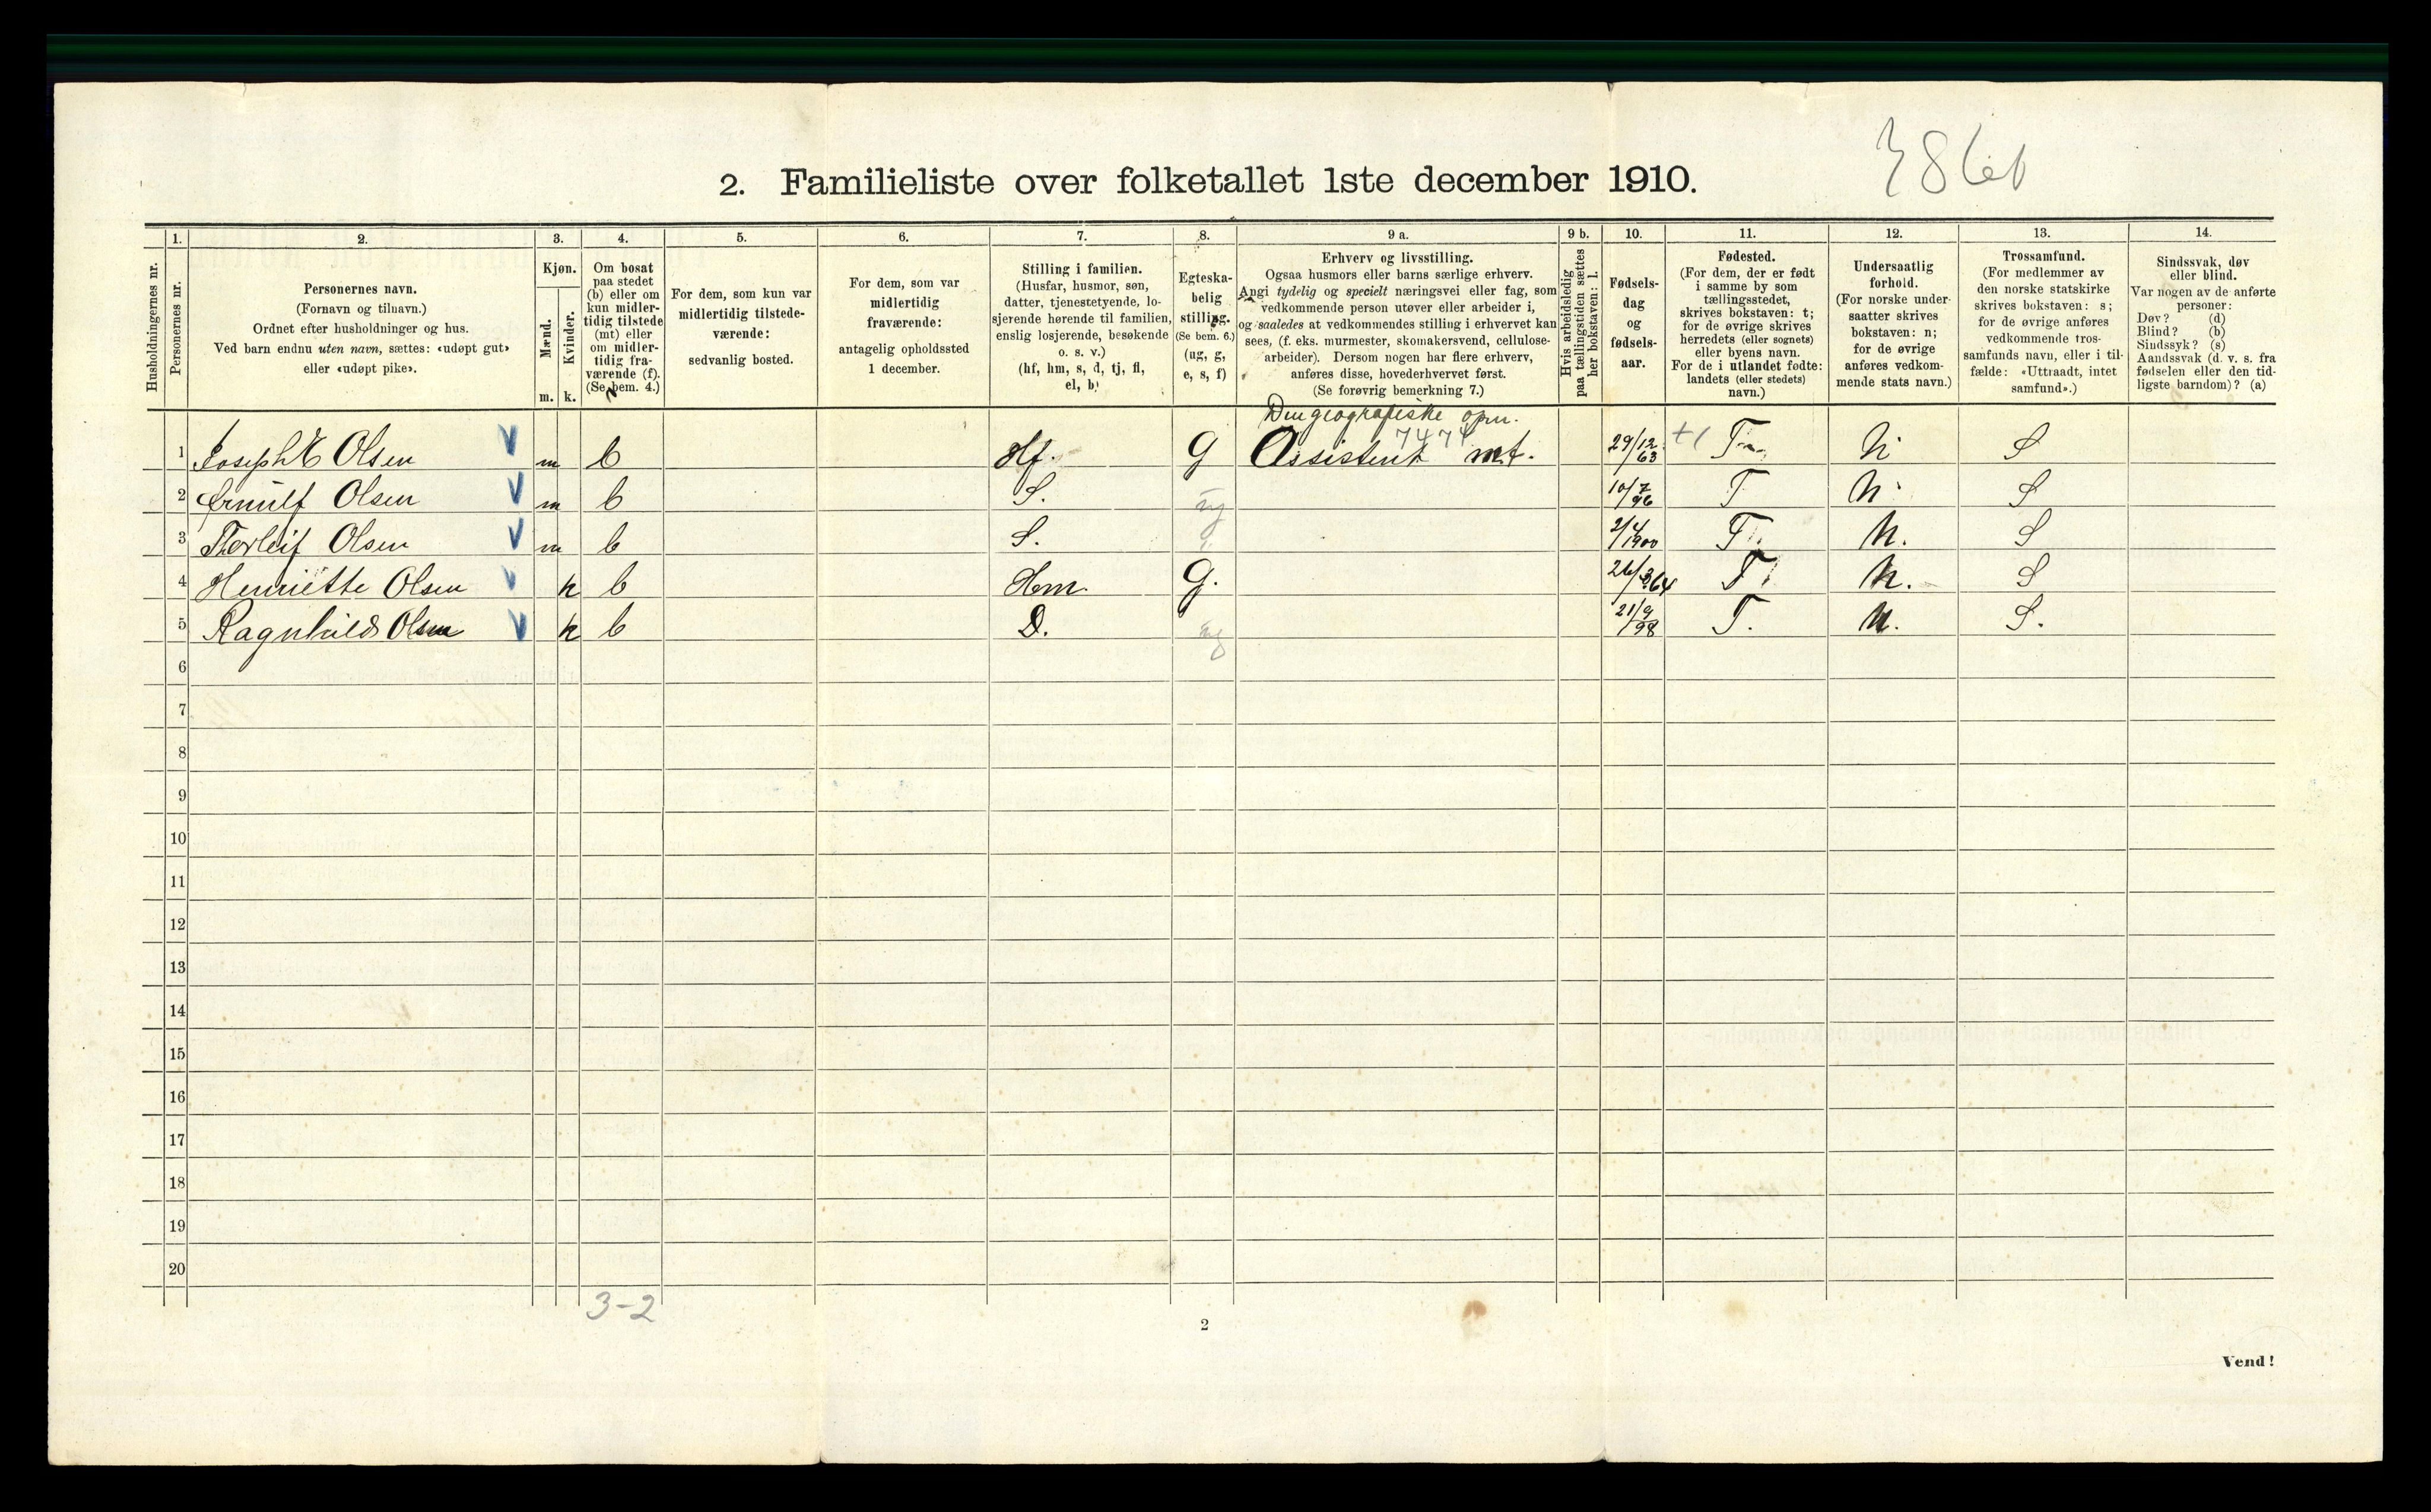 2. Familieliste over folketallet 1ste december 1910.
Husholdningernes nr.
1.
Personernes nr.
2.
Personernes navn.
(Fornavn og tilnavn.)
Ordnet efter husholdninger og hus.
Ved barn endnu uten navn, sættes: «udøpt gut»
eller «udøpt pike».
3.
Kjøn.
Mænd.
Kvinder.
m. k.
4.
Om bosat
paa stedet
(b) eller om
kun midler-
tidig tilstede
(mt) eller
om midler-
tidig fra-
værende (f).
(Se bem. 4.)
5.
For dem, som kun var
midlertidig tilstede-
værende:
sedvanlig bosted.
6.
For dem, som var
midlertidig
fraværende:
antagelig opholdssted
1 december.
7.
Stilling i familien.
(Husfar, husmor, søn,
datter, tjenestetyende, lo-
sjerende hørende til familien,
enslig losjerende, besøkende
o. s. v.)
(hf, hm, s, d, tj, fl,
el, b)
8.
Egteska-
belig
stilling.
(Se bem. 6.)
(ug, g,
e, s, f)
9 a.
Erhverv og livsstilling.
Ogsaa husmors eller barns særlige erhverv.
Angi tydelig og specielt næringsvei eller fag, som
vedkommende person utøver eller arbeider i,
og saaledes at vedkommendes stilling i erhvervet kan
sees, (f. eks. murmester, skomakersvend, cellulose-
arbeider). Dersom nogen har flere erhverv,
anføres disse, hovederhvervet først.
(Se forøvrig bemerkning 7.)
9 b.
Hvis arbeidsledig
paa tællingstiden sættes
her bokstaven: l.
10.
Fødsels-
dag
og
fødsels-
aar.
11.
Fødested.
(For dem, der er født
i samme by som
tællingsstedet,
skrives bokstaven: t;
for de øvrige skrives
herredets (eller sognets)
eller byens navn.
For de i utlandet fødte:
landets (eller stedets)
navn.)
12.
Undersaatlig
forhold.
(For norske under-
saatter skrives
bokstaven: n;
for de øvrige
anføres vedkom-
mende stats navn.)
13.
Trossamfund.
(For medlemmer av
den norske statskirke
skrives bokstaven: s;
for de øvrige anføres
vedkommende tros-
samfunds navn, eller i til-
fælde: «Uttraadt, intet
samfund».)
14.
Sindssvak, døv
eller blind.
Var nogen av de anførte
personer:
Døv? (d)
Blind? (b)
Sindssyk? (s)
Aandssvak (d. v. s. fra
fødselen eller den tid-
ligste barndom)? (a)
Den geografiske opm.
7474
1 Joseph E Olsen m b Hf. G Assistent 29/12 63 +1 T n S
2 Arnulf Olsen m b S. ug 10/7 96 T n S
3 Thorleif Olsen m b S. 2/4 1900 T. n. S
4 Henriette Olsen k b Hm. G. 26/3 64 T n. S
5 Ragnhild Olsen k b D. ug 21/9 98 T. n. S.
6
7
8
9
10
11
12
13
14
15
16
17
18
19
20
3-2
2
Vend!